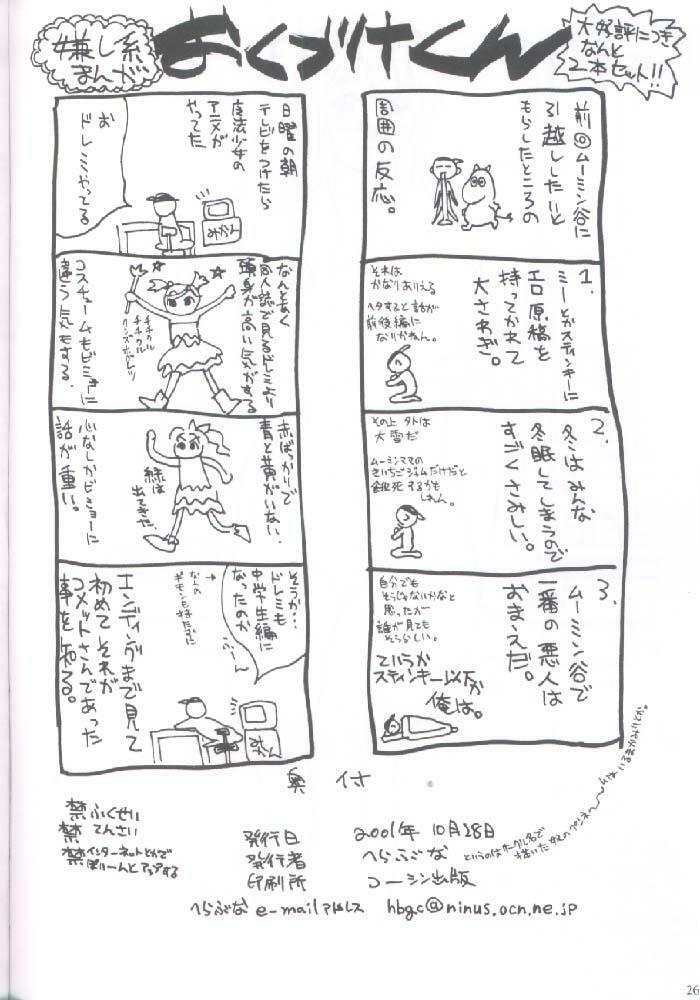 嫌し系
まんが
おくづけくん
大好評につき
なんと
2本セット!!
前回ムーミン谷に
引越ししたいと
もらしたところの
周囲の反応。
1.
ミーとかスティンキーに
エロ原稿を
持ってかれて
大さわぎ。
それは
かなりありえる
ヘタすると話が
前後編に
なりかねん。
2.
冬はみんな
冬眠してしまうので
すごくさみしい。
その上外は
大雪だ
ムーミンママの
きいちごジャムだけだと
餓死するかも
しれん。
3.
ムーミン谷で
一番の悪人は
おまえだ。
自分でも
そうじゃないかなと
思ったが
誰が見ても
そうらしい。
ていうか
スティンキー以下か
俺は。
日曜の朝
テレビをつけたら
魔法少女の
アニメが
やってた
お
ドレミやってる
みかん
なんとなく
同人誌で見るドレミより
頭身が高い気がする
コスチュームもビミョーに
違う気もする。
赤ばっかりで
青と黄がいない。
緑は
出てきた。
心なしかビミョーに
話が重い。
そうか…
ドレミも
中学生編に
なったのか
ふーん
なんの
ギモンも持たずに
みかん
エンディングまで見て
初めてそれが
コメットさんであった
事を知る。
奥付
禁ふくせい
禁てんさい
禁インターネットとかで
ぽりーんとアップする
発行日 2001年 10月28日
発行者 へらぶな
印刷所 コーシン出版
へらぶな e-mailアドレス hbgc@ninus.ocn.ne.jp
26